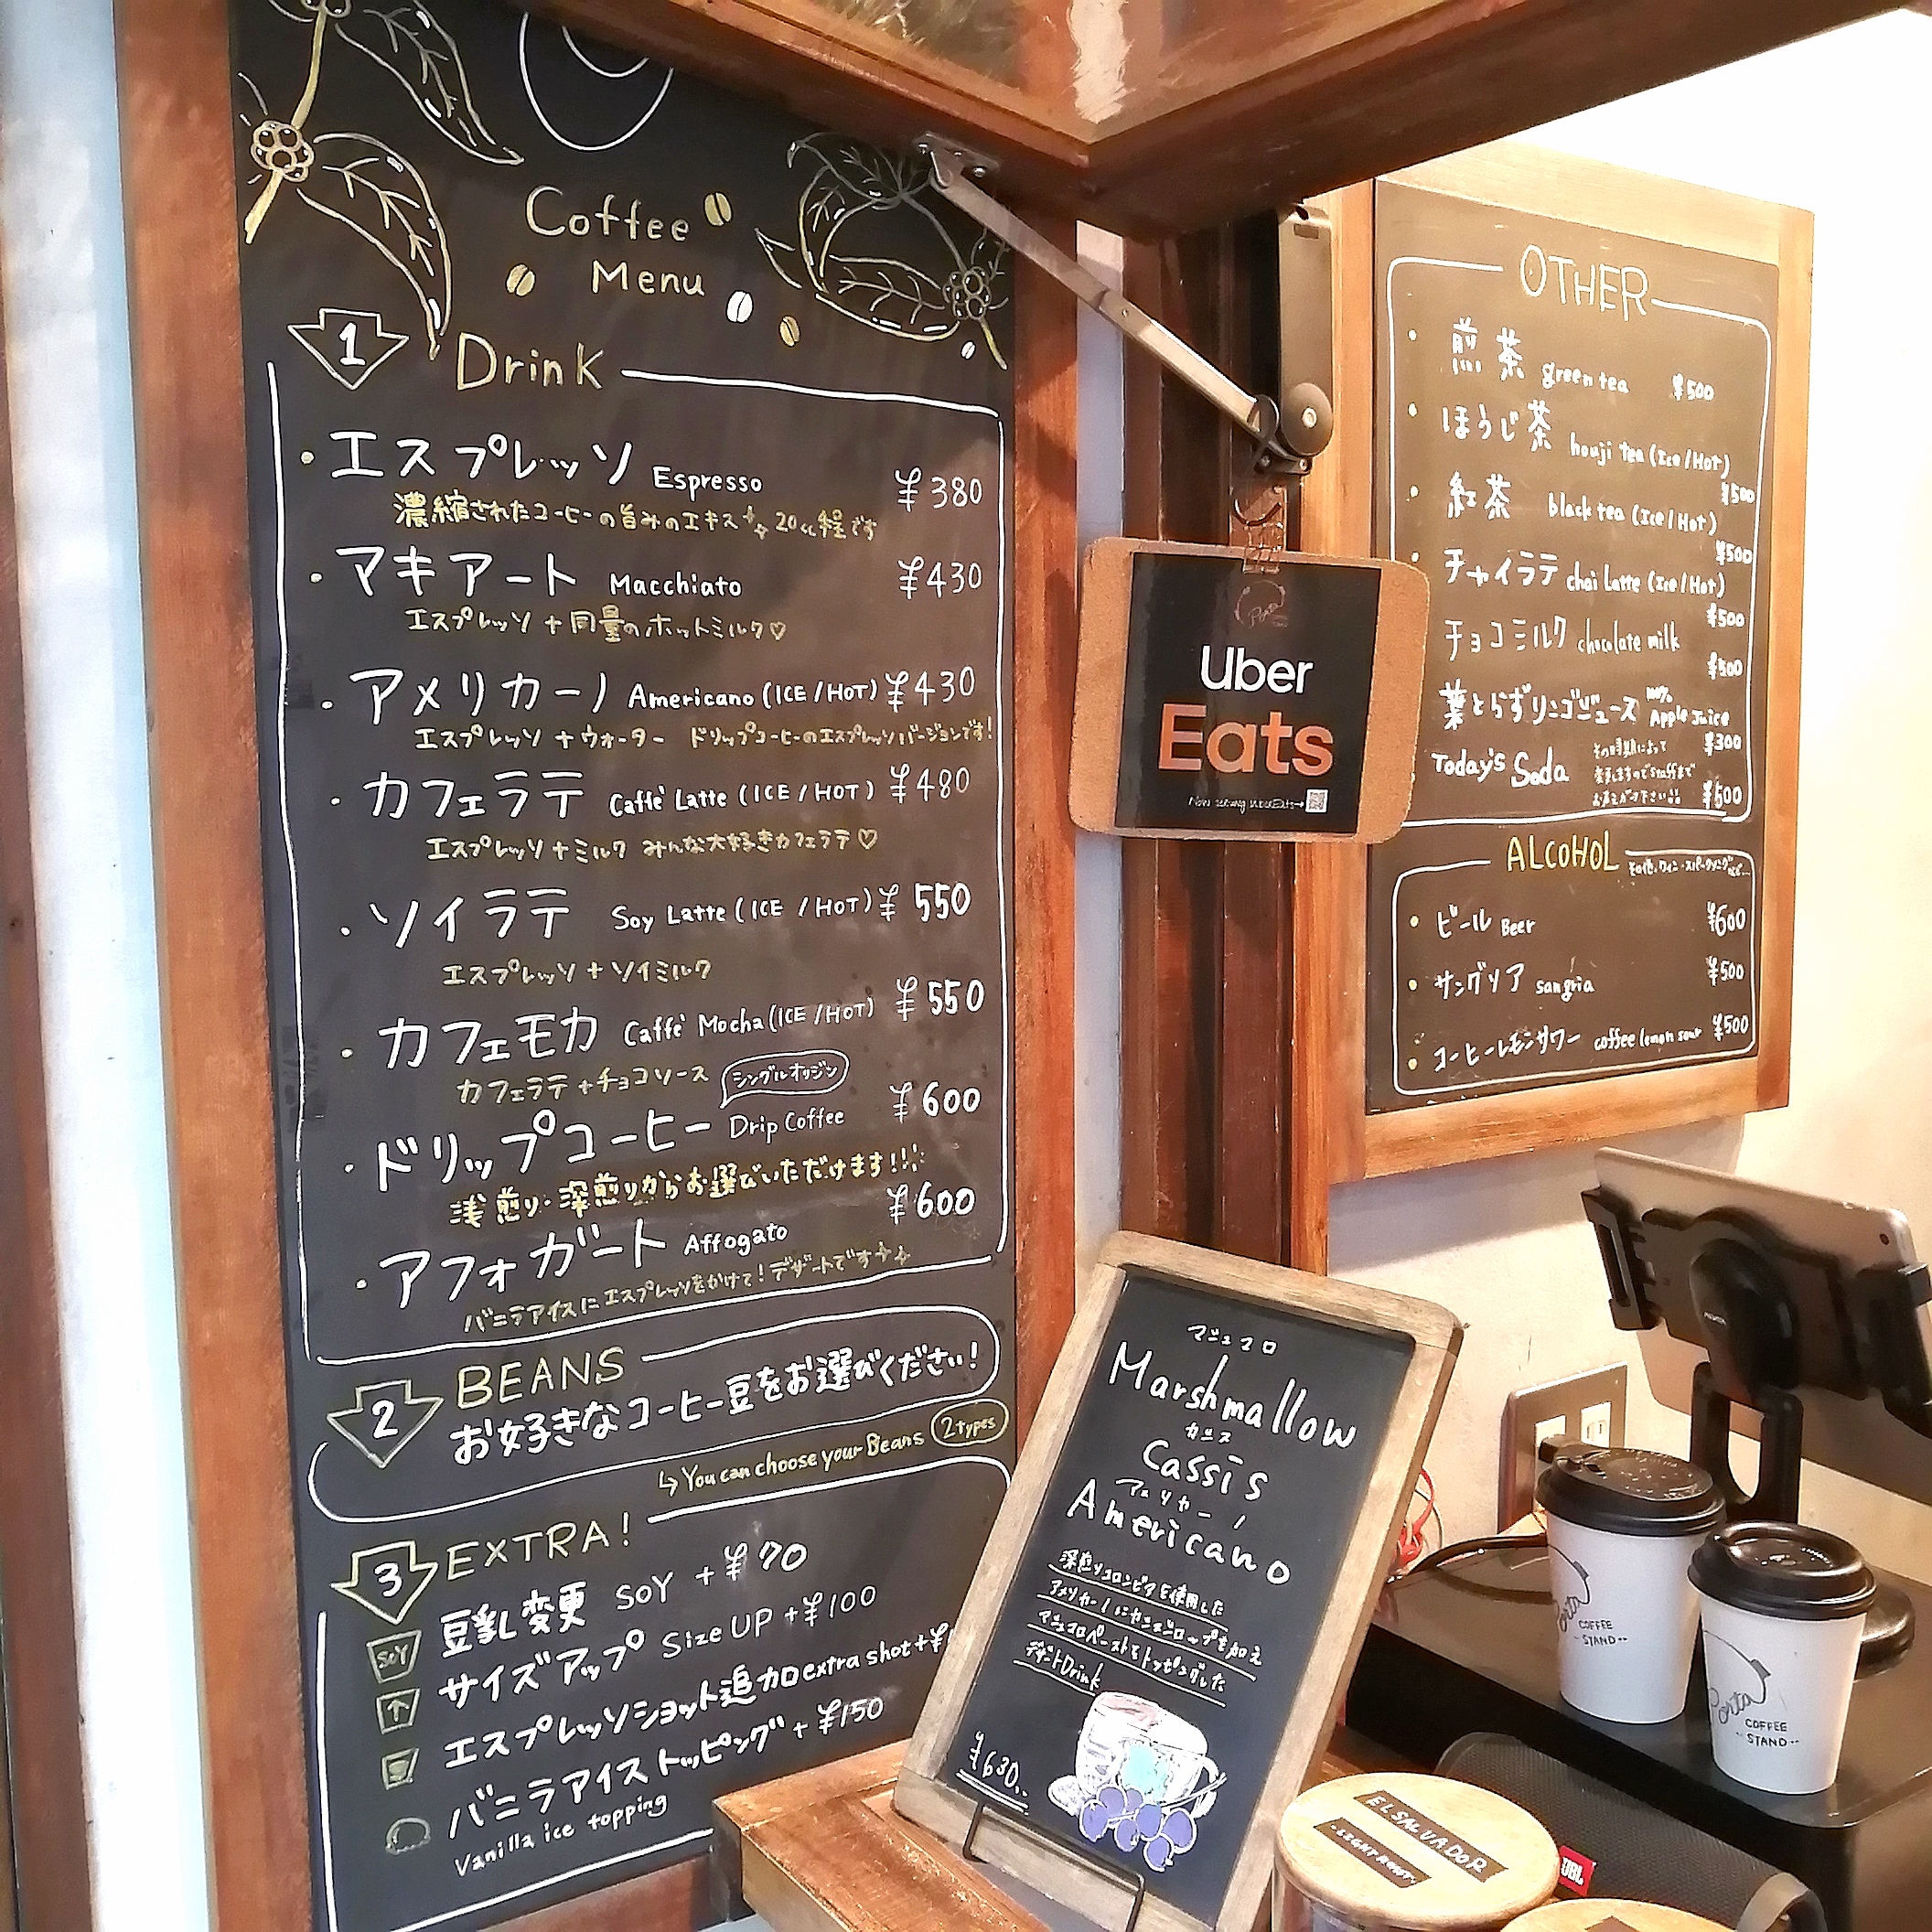 Coffee
Menu
1 Drink
・エスプレッソ Espresso ¥380
濃縮されたコーヒーの旨みのエキス 20cc程です
・マキアート Macchiato ¥430
エスプレッソ+同量のホットミルク♡
・アメリカーノ Americano (ICE/HOT) ¥430
エスプレッソ+ウォーター ドリップコーヒーのエスプレッソバージョンです!
・カフェラテ Caffè Latte (ICE/HOT) ¥480
エスプレッソ+ミルク みんな大好きカフェラテ♡
・ソイラテ Soy Latte (ICE/HOT) ¥550
エスプレッソ+ソイミルク
・カフェモカ Caffè Mocha (ICE/HOT) ¥550
カフェラテ+チョコソース
シングルオリジン
・ドリップコーヒー Drip Coffee ¥600
浅煎り・深煎りからお選びいただけます!!!
・アフォガート Affogato ¥600
バニラアイスにエスプレッソをかけて!デザートです
2 BEANS
お好きなコーヒー豆をお選びください!
↳ You can choose your Beans 2types
3 EXTRA!
SOY 豆乳変更 SOY +¥70
↑ サイズアップ Size UP +¥100
エスプレッソショット追加 extra shot +¥
バニラアイストッピング +¥150
Vanilla ice topping
Uber
Eats
Now serving UberEats→
OTHER
・煎茶 green tea ¥500
・ほうじ茶 houji tea (Ice/Hot)
¥500
・紅茶 black tea (Ice/Hot)
¥500
・チャイラテ chai Latte (Ice/Hot)
¥500
チョコミルク chocolate milk
¥500
葉とらずリンゴジュース 100% Apple Juice
¥300
Today's Soda
その時期によって
変わりますのでstaffまで
お尋ね下さい
¥500
ALCOHOL
・ビール Beer ¥600
・サングリア sangria ¥500
・コーヒーレモンサワー coffee lemon sour ¥500
マシュマロ
Marshmallow
カシス
Cassis
アメリカーノ
Americano
深煎りコロンビアを使用した
アメリカーノにカシスシロップを加え
マシュマロペーストをトッピングした
デザートDrink
¥630
Porta
COFFEE
STAND
Porta
COFFEE
STAND
EL SALVADOR
LIGHT ROAST
JBL